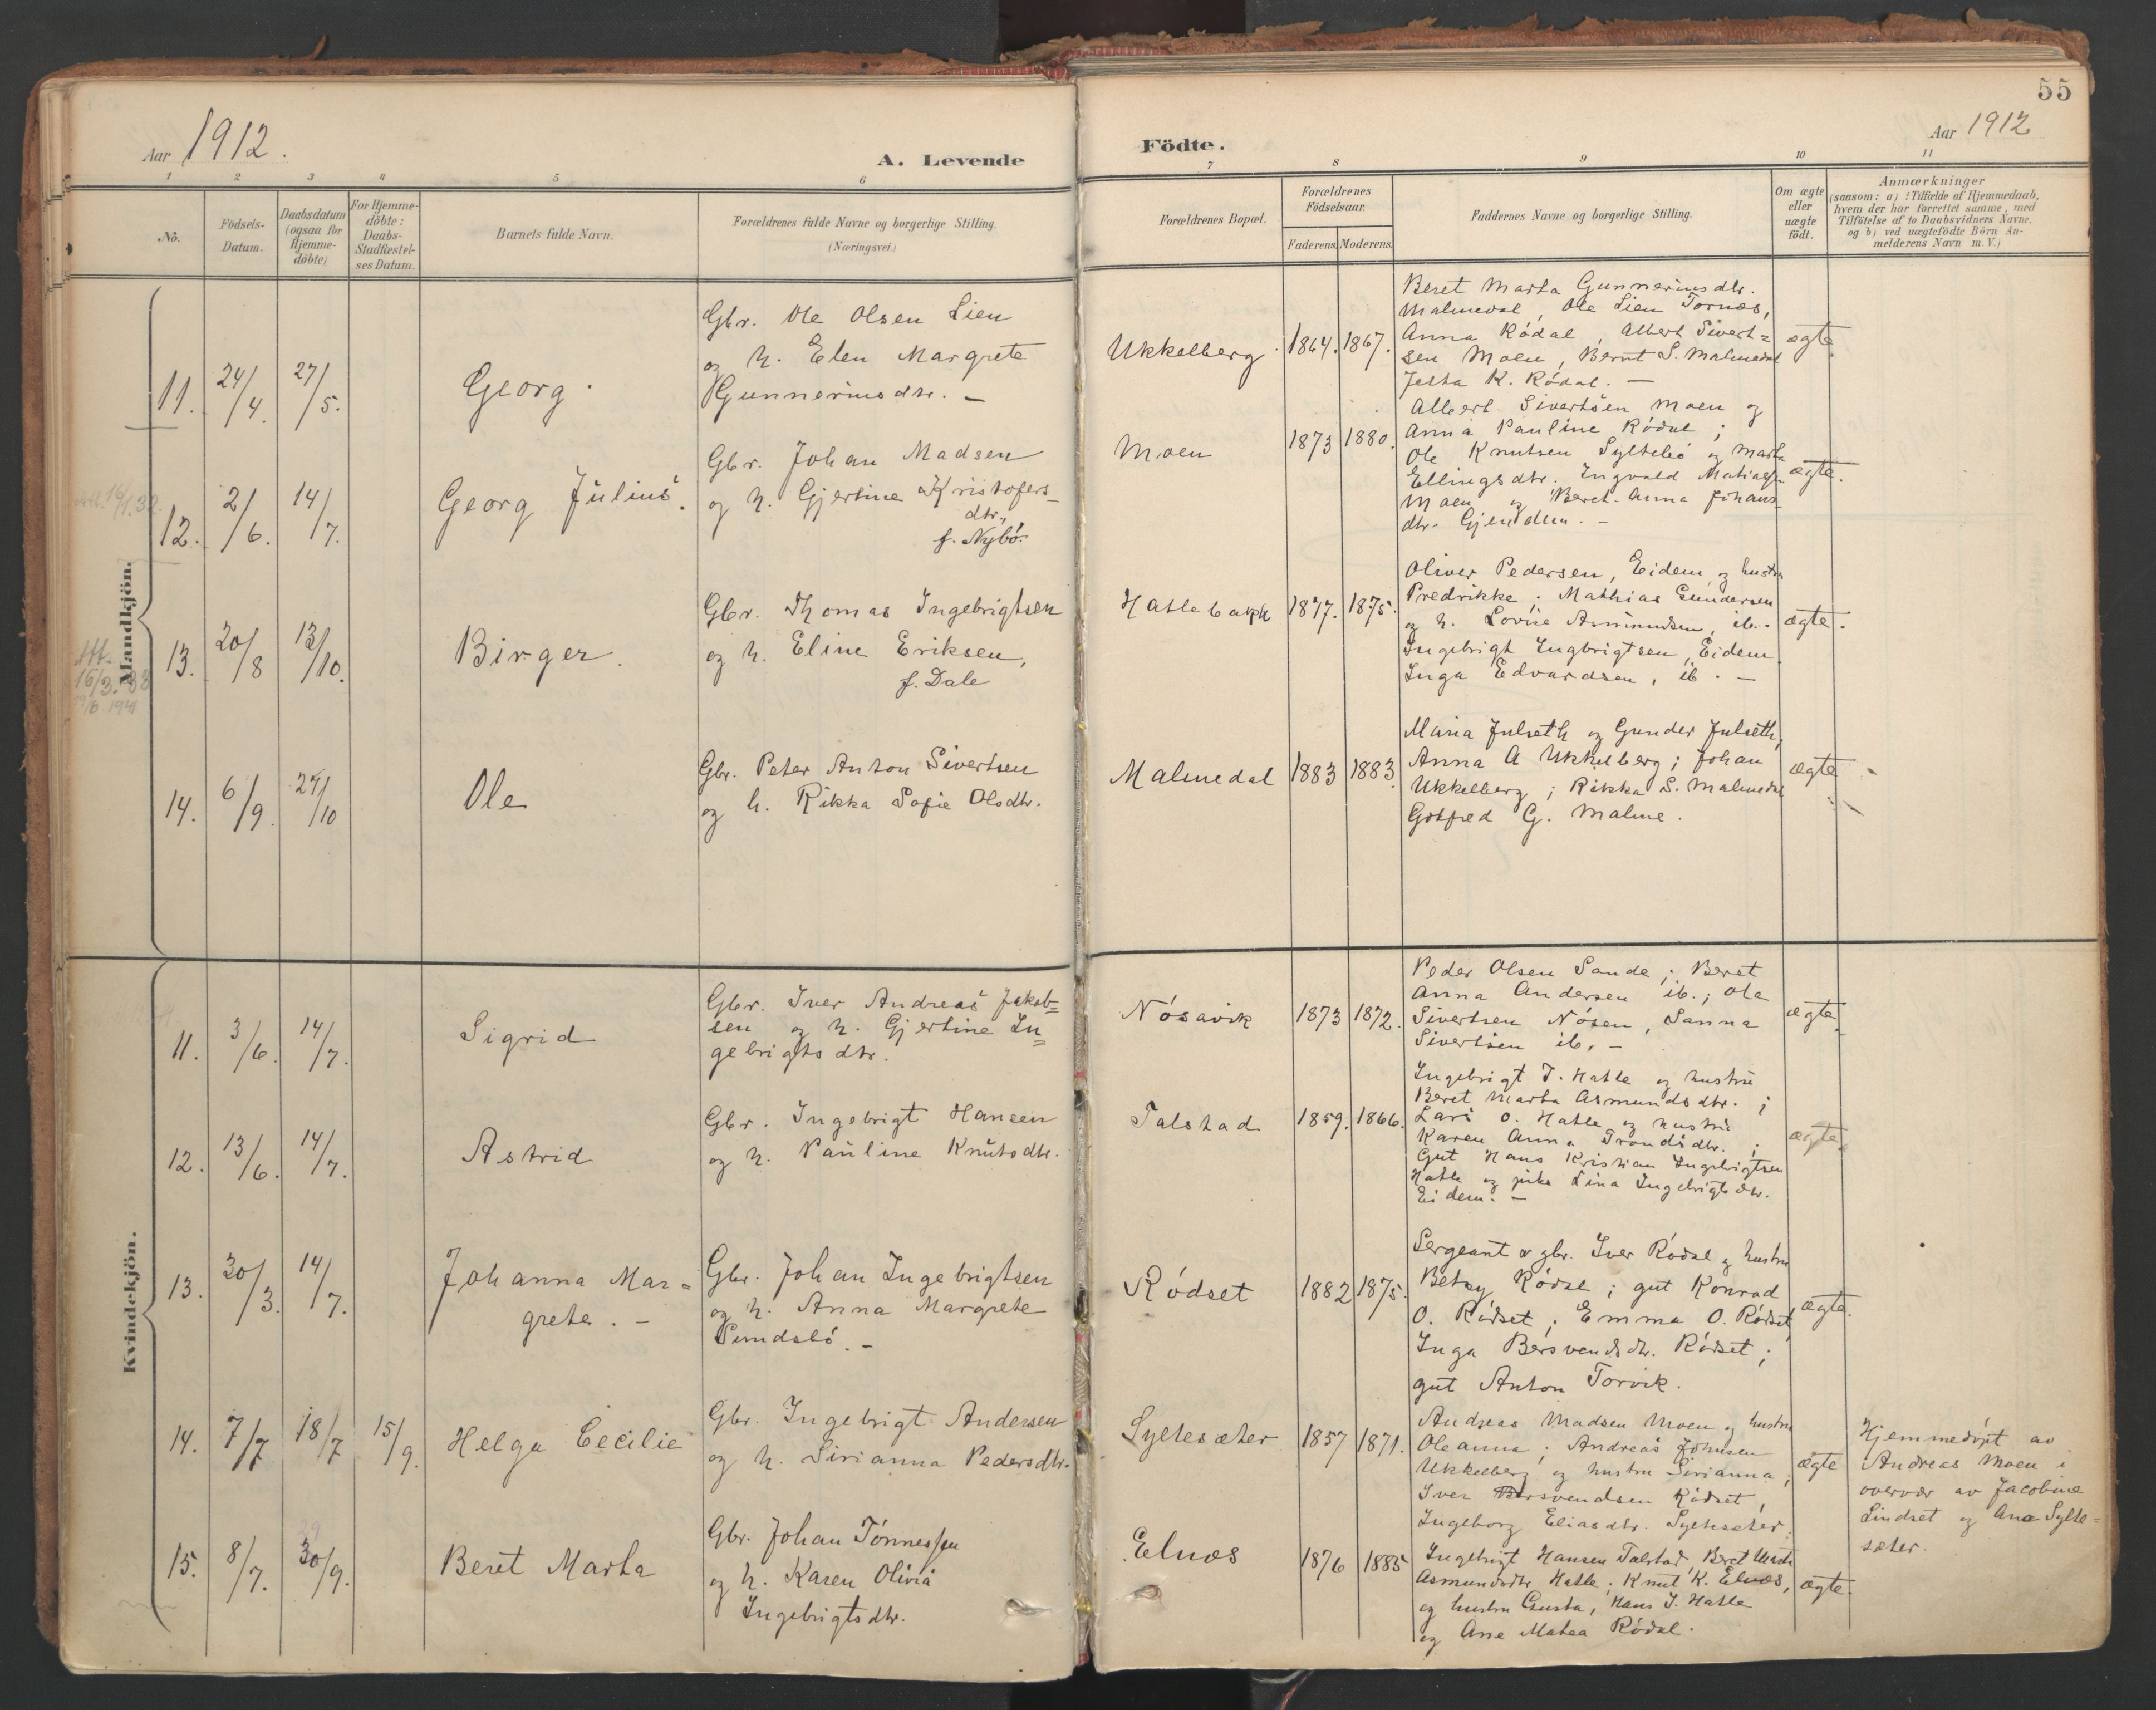 55
Aar 1912.
A. Levende
Födte.
Aar 1912
1 2 3 4 5 6 7 8 9 10 11
No.
Födsels-
Datum.
Daabsdatum
(ogsaa for
Hjemme-
döbte)
For Hjemme-
döbte:
Daabs-
Stadfæstel-
ses Datum.
Barnets fulde Navn.
Forældrenes fulde Navne og borgerlige Stilling.
(Næringsvei.)
Forældrenes Bopæl.
Forældrenes
Födselsaar.
Faderens. Moderens.
Faddernes Navne og borgerlige Stilling.
Om ægte
eller
uægte
födt.
Anmærkninger
(saasom: a) i Tilfælde af Hjemmedaab,
hvem der har forrettet samme, med
Tilföielse af to Daabsvidners Navne.
og b) ved uægtefödte Börn An-
melderens Navn m. V.)
Mandkjön.
11. 24/4. 27/5.
Georg.
Gbr. Ole Olsen Lien
og h. Elen Margrete
Gunnerinsdtr. -
Ukkelberg. 1864. 1867.
Beret Marta Gunnerinsdtr.
Malmedal, Ole Lien Tornæs,
Anna Rödal, Albert Sivert=
sen Moen, Bernt S. Malmedal
Jetta K. Rödal. -
ægte.
12. 2/6. 14/7.
16/1.32.
Georg Julius.
Gbr. Johan Madsen
og h. Gjertine Kristofers-
dtr.,
f. Nybö.
Moen 1873 1880.
Albert Sivertsen Moen og
Anna Pauline Rödal;
Ole Knutsen Syltebö og Marta
Ellingsdtr. Ingvald Matiassen
Moen og Beret-Anna Johans
dtr. Gjendem. -
ægte.
13. 20/8 13/10.
Att.
16/3.33
Birger.
Gbr. Thomas Ingebrigtsen
og h. Eline Eriksen,
f. Dale
Hatlebakk 1877. 1875.
Oliver Pedersen, Eidem og hustru
Fredrikke; Mathias Gundersen
og h. Lovise Asmundsen, ib. -
Ingebrigt Ingbrigtsen, Eidem.
Inga Edvardsen, ib. -
ægte.
14. 6/9. 27/10
Ole
Gbr. Peter Anton Sivertsen
og h. Rikka Sofie Olsdtr.
Malmedal 1883 1883.
Maria Julseth og Gunder Julseth,
Anna A Ukkelberg; Johan
Ukkelberg; Rikka S. Malmedal
Gotfred G. Malme.
ægte
Kvindekjön.
11. 3/6. 14/7.
Sigrid
Gbr. Iver Andreas Jakob=
sen og h. Gjertine In=
gebrigtsdtr.
Nösavik 1873 1872.
Peder Olsen Sande; Beret
Anna Andersen ib.; Ole
Sivertsen Nösen, Sanna
Sivertsen ib. -
ægte.
12. 13/6. 14/7.
Astrid
Gbr. Ingebrigt Hansen
og h. Pauline Knutsdtr.
Talstad 1859. 1866.
Ingebrigt J. Hatle og hustru
Beret Marta Asmundsdtr.;
Lars O. Hatle og hustru
Karen Anna Trondsdtr.;
Gut Hans Kristian Ingebrigtsen
Hatle og pike Lina Ingebrigtsdtr.
Eidem. -
ægte.
13. 30/3. 14/7.
Johanna Mar-
grete. -
Gbr. Johan Ingebrigtsen
og h. Anna Margrete
Sundsbö. -
Rödset 1882 1875.
Sergeant & gbr. Iver Rödal og hustru
Betzy Rödal; gut Konrad
O. Rödset; Emma O. Rödset,
Inga Bersvendsdtr. Rödset;
gut Anton Torvik.
ægte.
14. 7/7 18/7 15/9.
Helga Cecilie
Gbr. Ingebrigt Andersen
og h. Sirianna Pedersdtr.
Syltesæter 1857 1871.
Andreas Madsen Moen og hustru
Oleanna; Andreas Johnsen
Ukkelberg og hustru Sirianna;
Iver Bersvendsen Rödset,
Ingeborg Eliasdtr. Syltesæter.
ægte
Hjemmedöpt av
Andreas Moen i
overvær av Jacobine
Lindset og Ane Sylte=
sæter.
15. 8/7. 30/9.
29
Beret Marta
Gbr. Johan Tönnessen
og h. Karen Olivia
Ingebrigtsdtr.
Elnæs 1876 1885
Ingebrigt Hansen Talstad, Beret Marta
Asmundsdtr. Hatle; Knut K. Elnæs,
og hustru Gusta, Hans J. Hatle
og Ane Matea Rödal.
ægte.